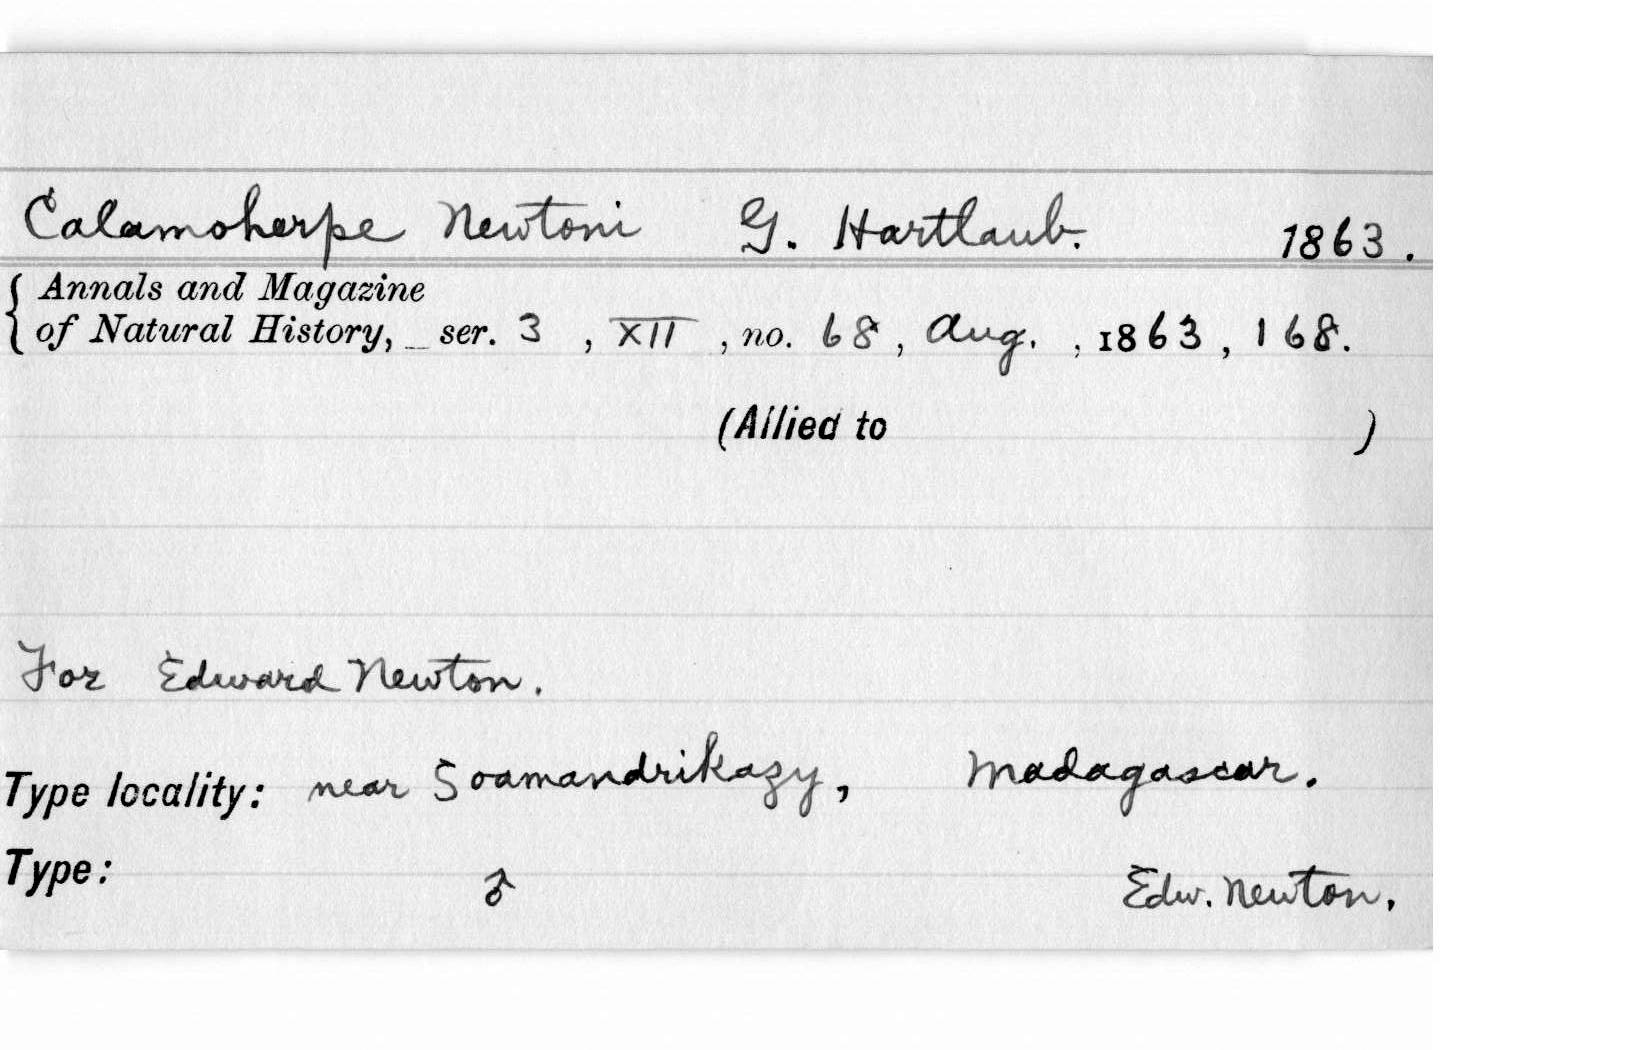 Calamoherpe Newtoni G. Hartlaub. 1863.
{ Annals and Magazine
of Natural History, _ ser. 3 , XII , no. 68, Aug. , 1863, 168.
(Allied to )
For Edward Newton.
Type locality: near Soamandrikazy, Madagascar.
Type: ♂ Edw. Newton.